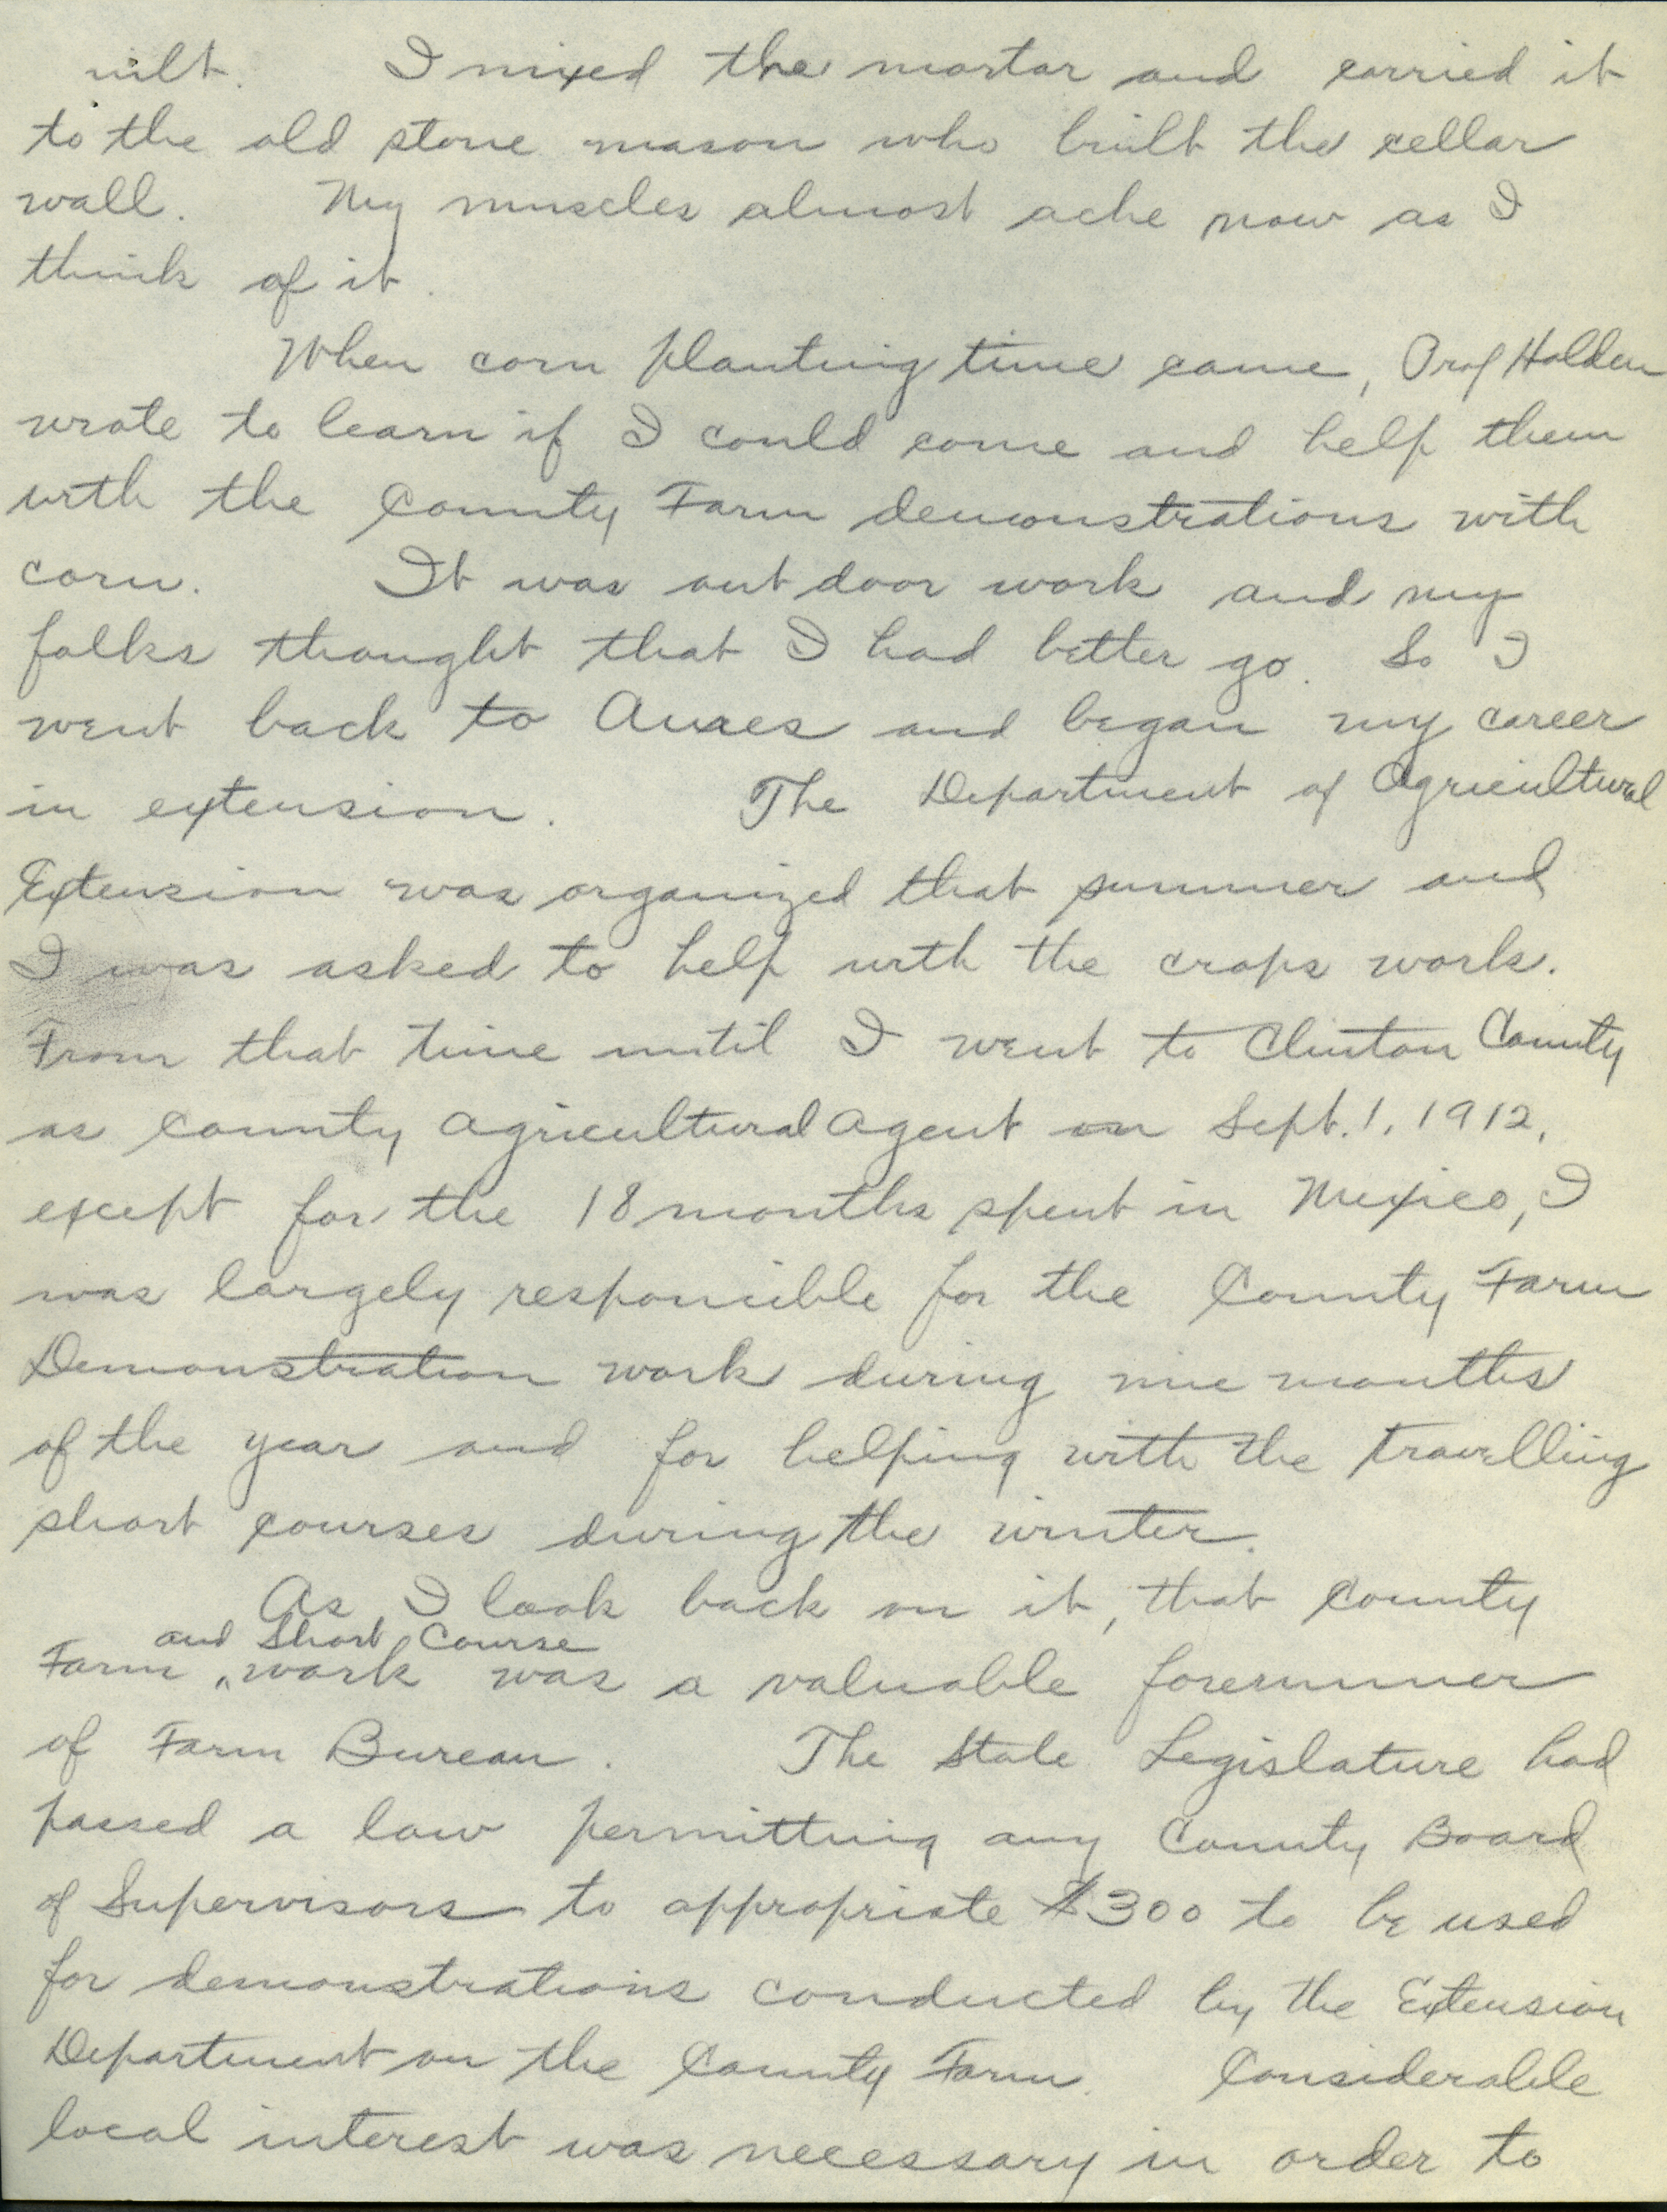 uilt. I mixed the mortar and carried it
to the old stone mason who built the cellar
wall. My muscles almost ache now as I
think of it.
When corn planting time came, Prof Holden
wrote to learn if I could come and help them
with the County Farm demonstrations with
corn. It was out door work and my
folks thought that I had better go. So I
went back to Ames and began my career
in extension. The Department of Agricultural
Extension was organized that summer and
I was asked to help with the crops work.
From that time until I went to Clinton County
as County Agricultural Agent on Sept. 1, 1912,
except for the 18 months spent in Mexico, I
was largely responsible for the County Farm
Demonstration work during nine months
of the year and for helping with the travelling
short courses during the winter.
As I look back on it, that County
and Short Course
Farm work was a valuable forerunner
of Farm Bureau. The State Legislature had
passed a law permitting any County Board
of Supervisors to appropriate $300 to be used
for demonstrations conducted by the Extension
Department on the County Farm. Considerable
local interest was necessary in order to